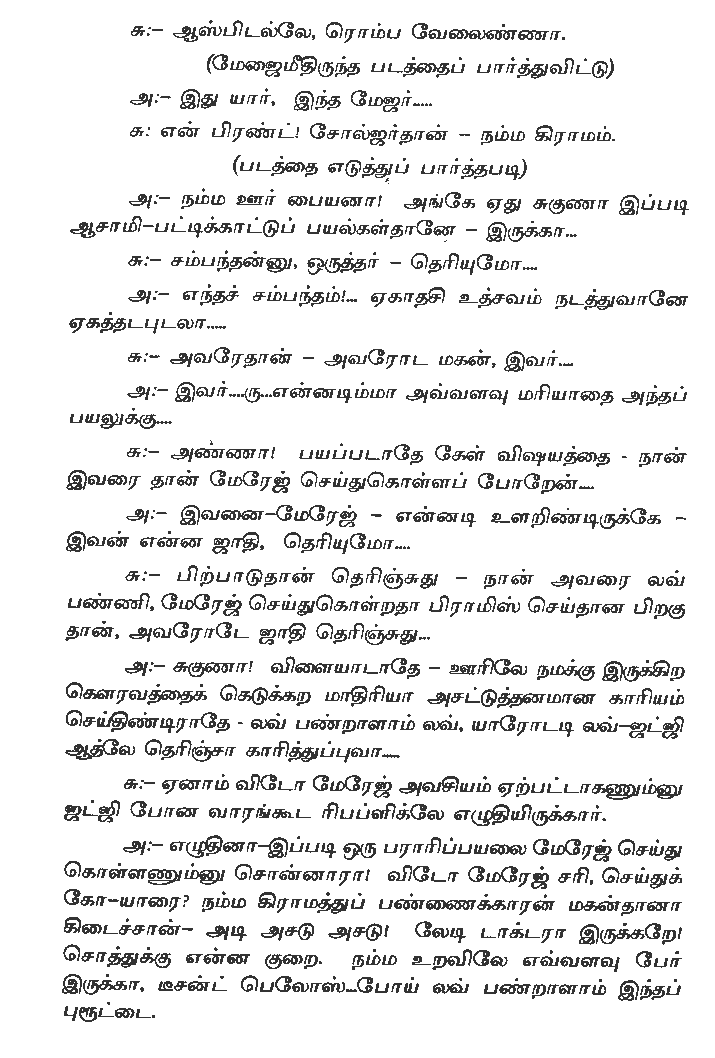 சு:– ஆஸ்பிடல்லே, ரொம்ப வேலைண்ணா.
(மேஜைமீதிருந்த படத்தைப் பார்த்துவிட்டு)
அ:– இது யார், இந்த மேஜர்.....
சு: என் பிரண்ட்! சோல்ஜர்தான் – நம்ம கிராமம்.
(படத்தை எடுத்துப் பார்த்தபடி)
அ:– நம்ம ஊர் பையனா! அங்கே ஏது சுகுணா இப்படி
ஆசாமி–பட்டிக்காட்டுப் பயல்கள்தானே – இருக்கா...
சு:– சம்பந்தன்னு, ஒருத்தர் – தெரியுமோ....
அ:– எந்தச் சம்பந்தம்!... ஏகாதசி உத்சவம் நடத்துவானே
ஏகத்தடபுடலா.....
சு:– அவரேதான் – அவரோட மகன், இவர்....
அ:– இவர்....ரு...என்னடிம்மா அவ்வளவு மரியாதை அந்தப்
பயலுக்கு....
சு:– அண்ணா! பயப்படாதே கேள் விஷயத்தை - நான்
இவரை தான் மேரேஜ் செய்துகொள்ளப் போறேன்....
அ:– இவனை–மேரேஜ் – என்னடி உளறிண்டிருக்கே –
இவன் என்ன ஜாதி, தெரியுமோ....
சு:– பிற்பாடுதான் தெரிஞ்சுது – நான் அவரை லவ்
பண்ணி, மேரேஜ் செய்துகொள்றதா பிராமிஸ் செய்தான பிறகு
தான், அவரோடே ஜாதி தெரிஞ்சுது...
அ:– சுகுணா! விளையாடாதே – ஊரிலே நமக்கு இருக்கிற
கௌரவத்தைக் கெடுக்கற மாதிரியா அசட்டுத்தனமான காரியம்
செய்திண்டிராதே - லவ் பண்றாளாம் லவ், யாரோடடி லவ்–ஜட்ஜி
ஆத்லே தெரிஞ்சா காரித்துப்புவா.....
சு:– ஏனாம் விடோ மேரேஜ் அவசியம் ஏற்பட்டாகணும்னு
ஜட்ஜி போன வாரங்கூட ரிபப்ளிக்லே எழுதியிருக்கார்.
அ:– எழுதினா–இப்படி ஒரு பராரிப்பயலை மேரேஜ் செய்து
கொள்ளணும்னு சொன்னாரா! விடோ மேரேஜ் சரி, செய்துக்
கோ–யாரை? நம்ம கிராமத்துப் பண்ணைக்காரன் மகன்தானா
கிடைச்சான்– அடி அசடு அசடு! லேடி டாக்டரா இருக்கறே!
சொத்துக்கு என்ன குறை. நம்ம உறவிலே எவ்வளவு பேர்
இருக்கா, டீசண்ட் பெலோஸ்...போய் லவ் பண்றாளாம் இந்தப்
புரூட்டை.